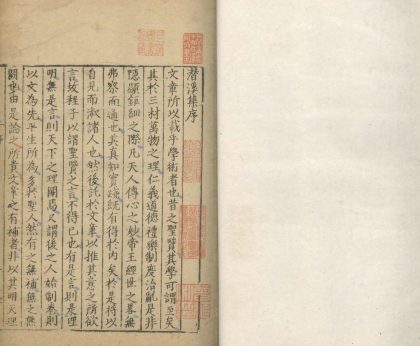 潛溪集序
文章所以載乎學術者也昔之聖賢其學可謂至矣
其於三材萬物之理仁義道德禮樂制度治亂是非
隱顯鉅細之際凡天人傳心之妙帝王經世之畧無
弗察而通也其真知實踐既有得於內矣於是持以
自見而淑諸人也然後託於文章以推其意之所欲
言故程子以謂聖賢之言不得已也有是言則是理
明無是言則天下之理闕焉又謂後之人始制卷則
以文為先平生所為多於聖人然有之無補無之無
闕也由是論之所貴文章之有補者非以其明天理